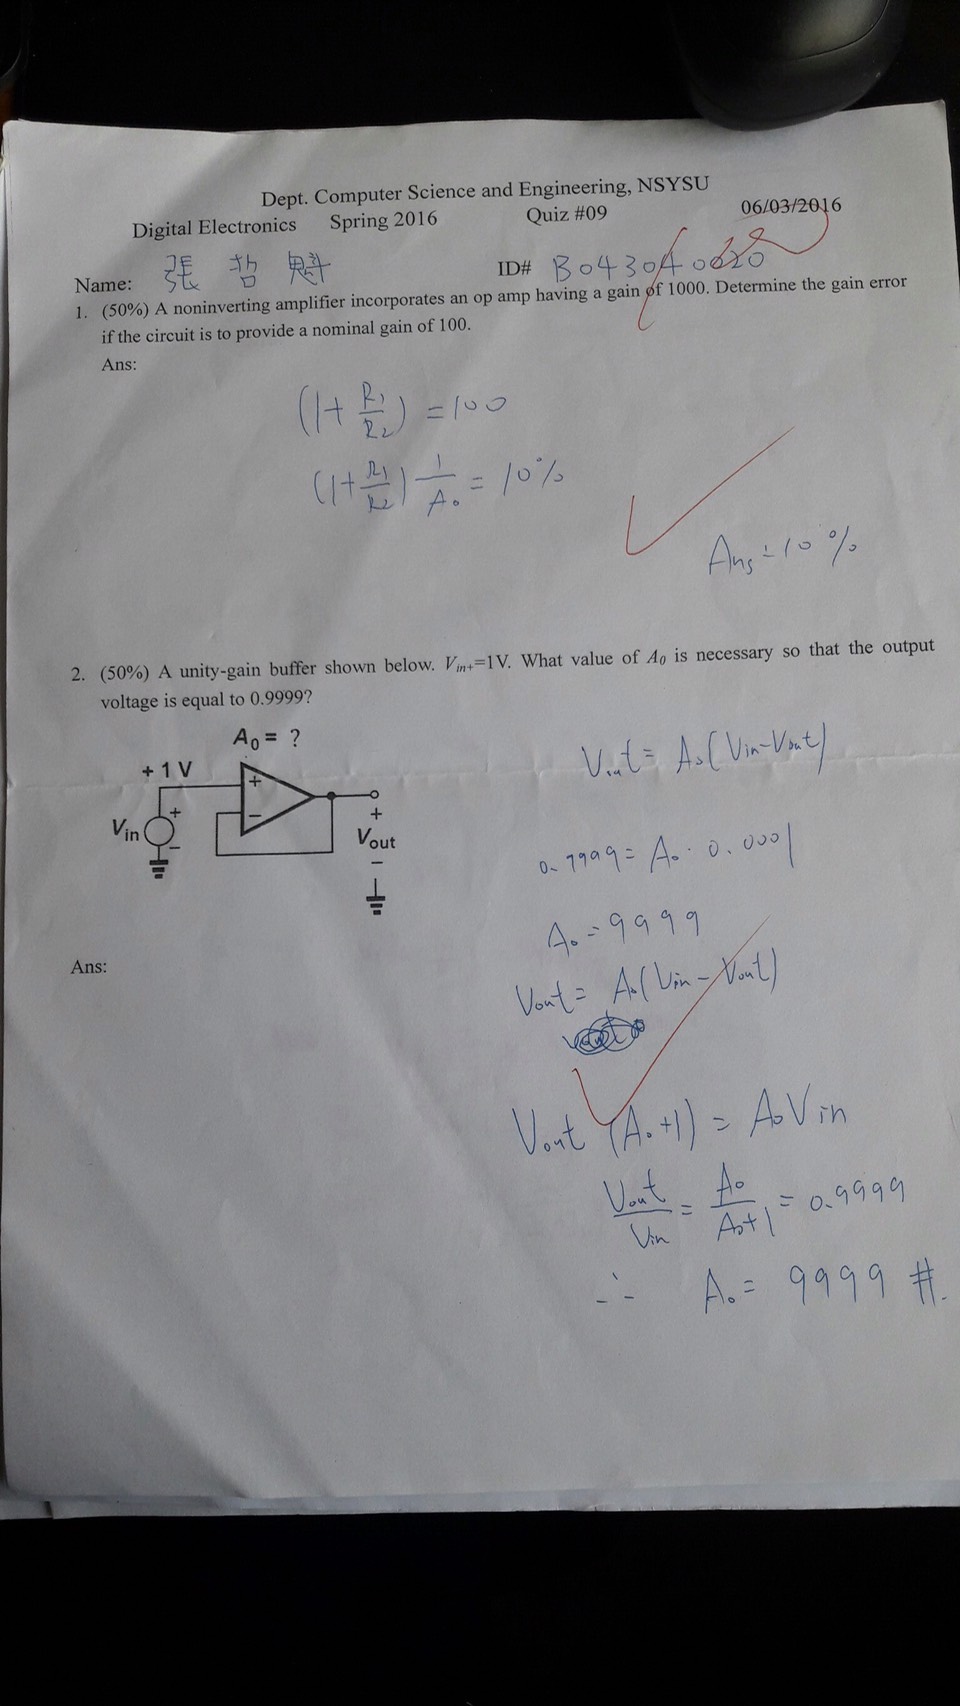 Dept. Computer Science and Engineering, NSYSU
Digital Electronics Spring 2016 Quiz #09 06/03/2016
Name: 張 哲 魁 ID# B043040020
1. (50%) A noninverting amplifier incorporates an op amp having a gain of 1000. Determine the gain error
if the circuit is to provide a nominal gain of 100.
Ans:
(1+R1/R2) = 100
(1+R1/R2) 1/A0 = 10%
Ans = 10%
2. (50%) A unity-gain buffer shown below. Vin+=1V. What value of A0 is necessary so that the output
voltage is equal to 0.9999?
A0 = ?
+1V
Vin
+
−
+
−
+
Vout
−
Vout = A0(Vin-Vout)
0.9999 = A0 · 0.0001
A0 = 9999
Ans:
Vout = A0(Vin-Vout)
Vout (A0+1) = A0Vin
Vout/Vin = A0/A0+1 = 0.9999
∴ A0 = 9999 #.